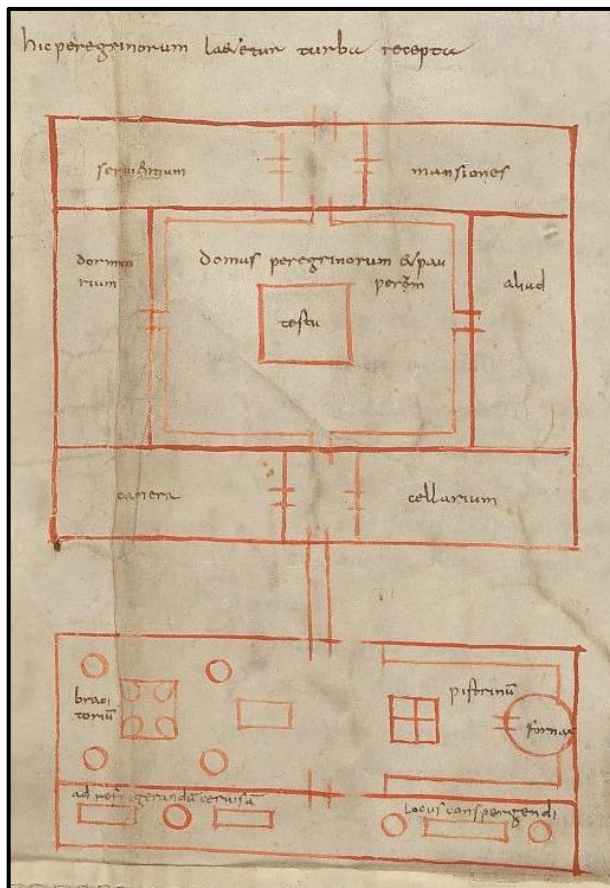 hic peregrinorum laetetur turba recepta
servientium
mansiones
dormi
torium
domus peregrinorum & pau
perum
aliud
testu
camera
cellarium
braci
toriū
pistrinū
fornax
ad refrigerandū cervisā
locus conspergendi